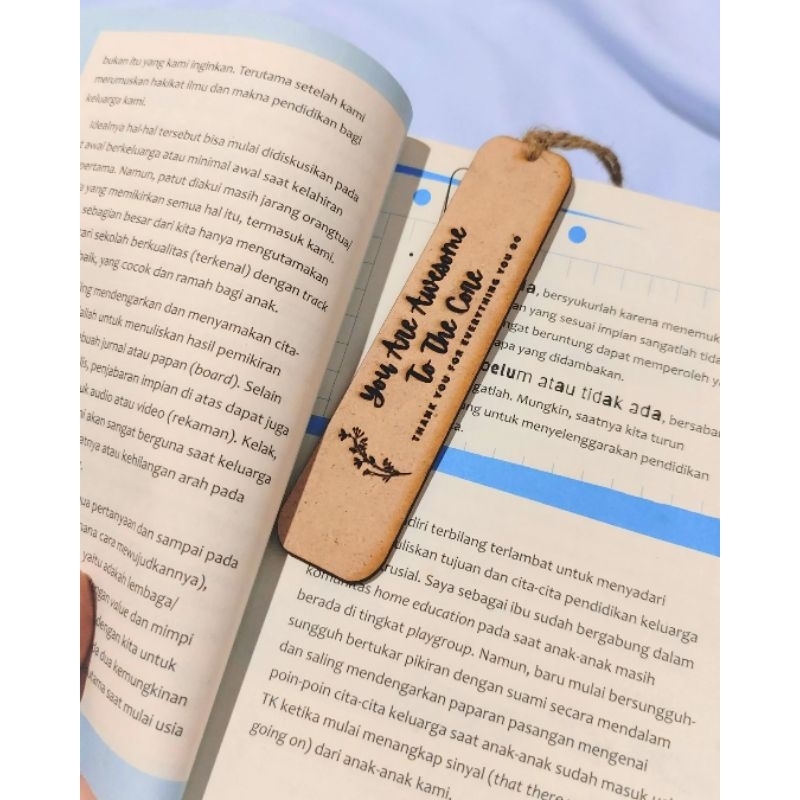 bukan itu yang kami inginkan. Terutama setelah kami
merumuskan hakikat ilmu dan makna pendidikan bagi
keluarga kami.
Idealnya hal-hal tersebut bisa mulai didiskusikan pada
awal berkeluarga atau minimal awal saat kelahiran
pertama. Namun, patut diakui masih jarang orangtua/
yang memikirkan semua hal itu, termasuk kami.
sebagian besar dari kita hanya mengutamakan
sekolah berkualitas (terkenal) dengan track
yang cocok dan ramah bagi anak.
mendengarkan dan menyamakan cita-
untuk menuliskan hasil pemikiran
jurnal atau papan (board). Selain
penjabaran impian di atas dapat juga
audio atau video (rekaman). Kelak,
akan sangat berguna saat keluarga
atau kehilangan arah pada
pertanyaan dan sampai pada
cara mewujudkannya),
yaitu adakah lembaga/
value dan mimpi
dengan kita untuk
dua kemungkinan
saat mulai usia
You Are Awesome
To The Core
THANK YOU FOR EVERYTHING YOU DO
bersyukurlah karena menemuk
yang sesuai impian sangatlah tida
beruntung dapat memperoleh
yang didambakan.
belum atau tidak ada, bersaba
Mungkin, saatnya kita turun
untuk menyelenggarakan pendidikan
diri terbilang terlambat untuk menyadari
tujuan dan cita-cita pendidikan keluarga
Saya sebagai ibu sudah bergabung dalam
komunitas home education pada saat anak-anak masih
berada di tingkat playgroup. Namun, baru mulai bersungguh-
sungguh bertukar pikiran dengan suami secara mendalam
dan saling mendengarkan paparan pasangan mengenai
poin-poin cita-cita keluarga saat anak-anak sudah masuk
TK ketika mulai menangkap sinyal (that there
going on) dari anak-anak kami,